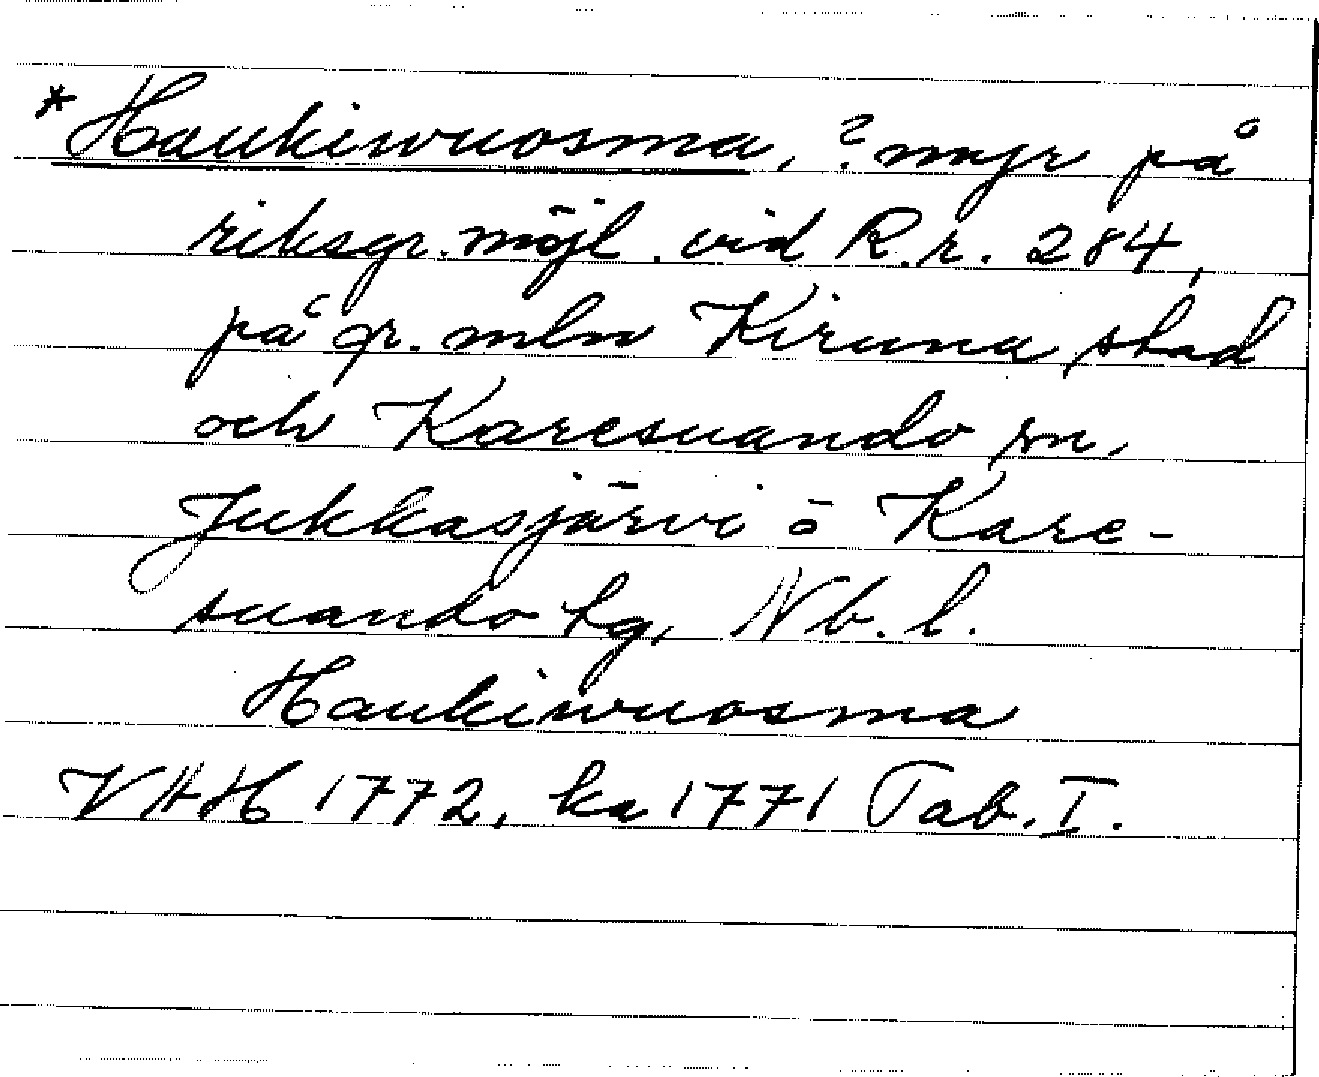 *Haukiwuosma, ? myr på
riksgr. möjl. vid R.r. 284,
på gr. mln Kiruna stad
och Karesuando sn,
Jukkasjärvi o Kare-
suando tg, Nb. l.
Haukiwuosma
VHH 1772, ka 1771 Tab. I.